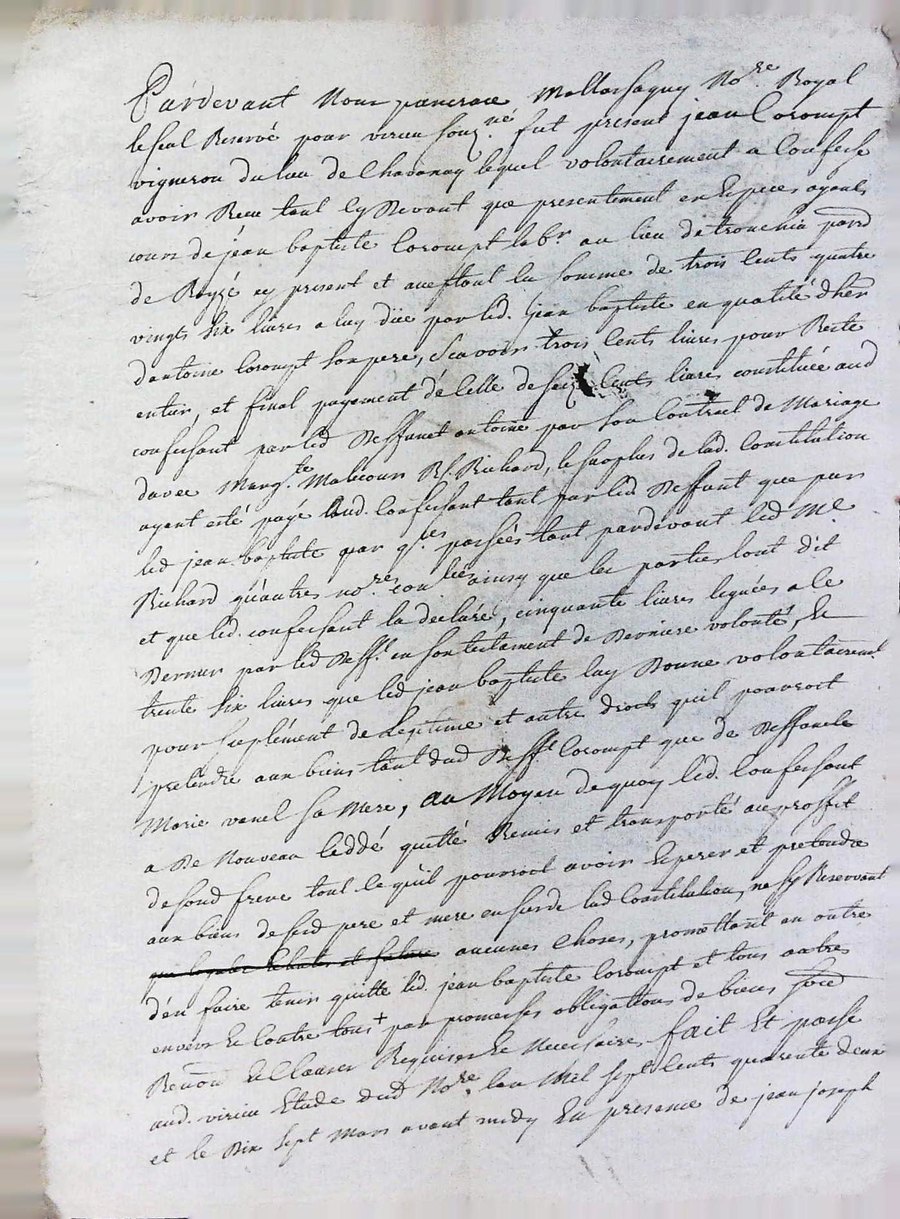 Pardevant Nour pancrace Mallarsagny No.re Royal
le seul Reservé pour virieu souz.né fut present jean Corompt
vigneron du lieu de Chavanay lequel volontairement a Confessé
avoir Receu tant Cy Devant que presentement en Especes ayants
cours de jean baptiste Corompt lab.r au lieu de parr
de cy present et aceptant la somme de trois Cents quatre
vingts six livres a luy düe par led. jean baptiste en qualité d'her
d'antoine Corompt son pere, Scavoir trois Cents livres pour Reste
entier, et final payement de Celle de seize Cents livres constituée aud
confessant par led Deffunct antoine par son Contract de Mariage
d'avec Marg.te Malecour R. Richard, le surplus de lad. Constitution
ayant esté payé aud. Confessant tant par led Deffunt que par
led jean baptiste par q.ces passées tant pardevant led Me
Richard qu'autres no.res ainsy que les parties l'ont dit
et que led. confessant la declaré, cinquante livres leguées a ce
Dernier par led Deff.t en son testament de Derniere volonté, Et
trente six livres que led jean baptiste luy Donne volontairem.t
pour suplément de Legitime et autre droits qu'il pouvroit
pretendre aux biens tant dud Deff.t Corompt que de Deffuncte
Marie vanel sa Mere, au Moyen de quoy led. Confessant
a De Nouveau Ceddé quitté Remis et transporté au proffit
de sond frere tout Ce qu'il pourroit avoir Esperer et pretendre
aux biens de sesd pere et mere en sus de lad Constitution, ne s'y Reservant
aucunes Choses, promettant en outre
d'en faire tenir quitte led. jean baptiste Corompt et tous autres
envers Et Contre tous + par promesses obligations de biens
Renõn Et Clauses Requises Et Necessaires, fait Et passé
aud. virieu Etude dud No.re l'an Mil sept Cents quarente deux
et le Dix sept Mars avant midy En presence de jean joseph